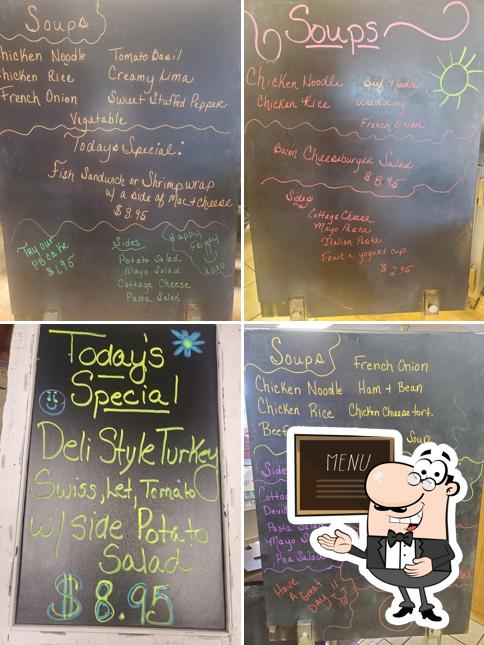 Soups
Chicken Noodle Tomato Basil
Chicken Rice Creamy Lima
French Onion Sweet Stuffed Pepper
Vegetable
Today's Special:
Fish Sandwich or Shrimp wrap
w/ a side of Mac + cheese
$8.95
Try our
PB cake
$1.95
Sides
Potato Salad
Mayo Salad
Cottage Cheese
Pasta Salad
Happy
Friday
XOXO
Soups
Chicken Noodle Beef Noodle
Chicken Rice Wedding
French Onion
Bacon Cheeseburger Salad
$8.95
Sides
Cottage Cheese
Mayo Pasta
Italian Pasta
Fruit n yogurt cup
$2.95
Today's
Special
Deli Style Turkey
Swiss, Let, Tomato
w/ side Potato
Salad
$8.95
Soups French Onion
Chicken Noodle Ham + Bean
Chicken Rice Chicken Cheese tort.
Beef
Soup
Side
Cottag
Devil
Pasta Salad
Mayo S
Pea Salad
Have
A Great
Day!!
MENU